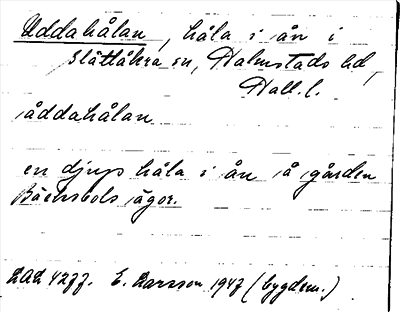 Uddahålan, håla i ån i
Slättåkra sn, Halmstads hd,
Hall. l.
åddahålan
en djup håla i ån å gården
ägor.
E. Larsson 1947 (bygdem.)